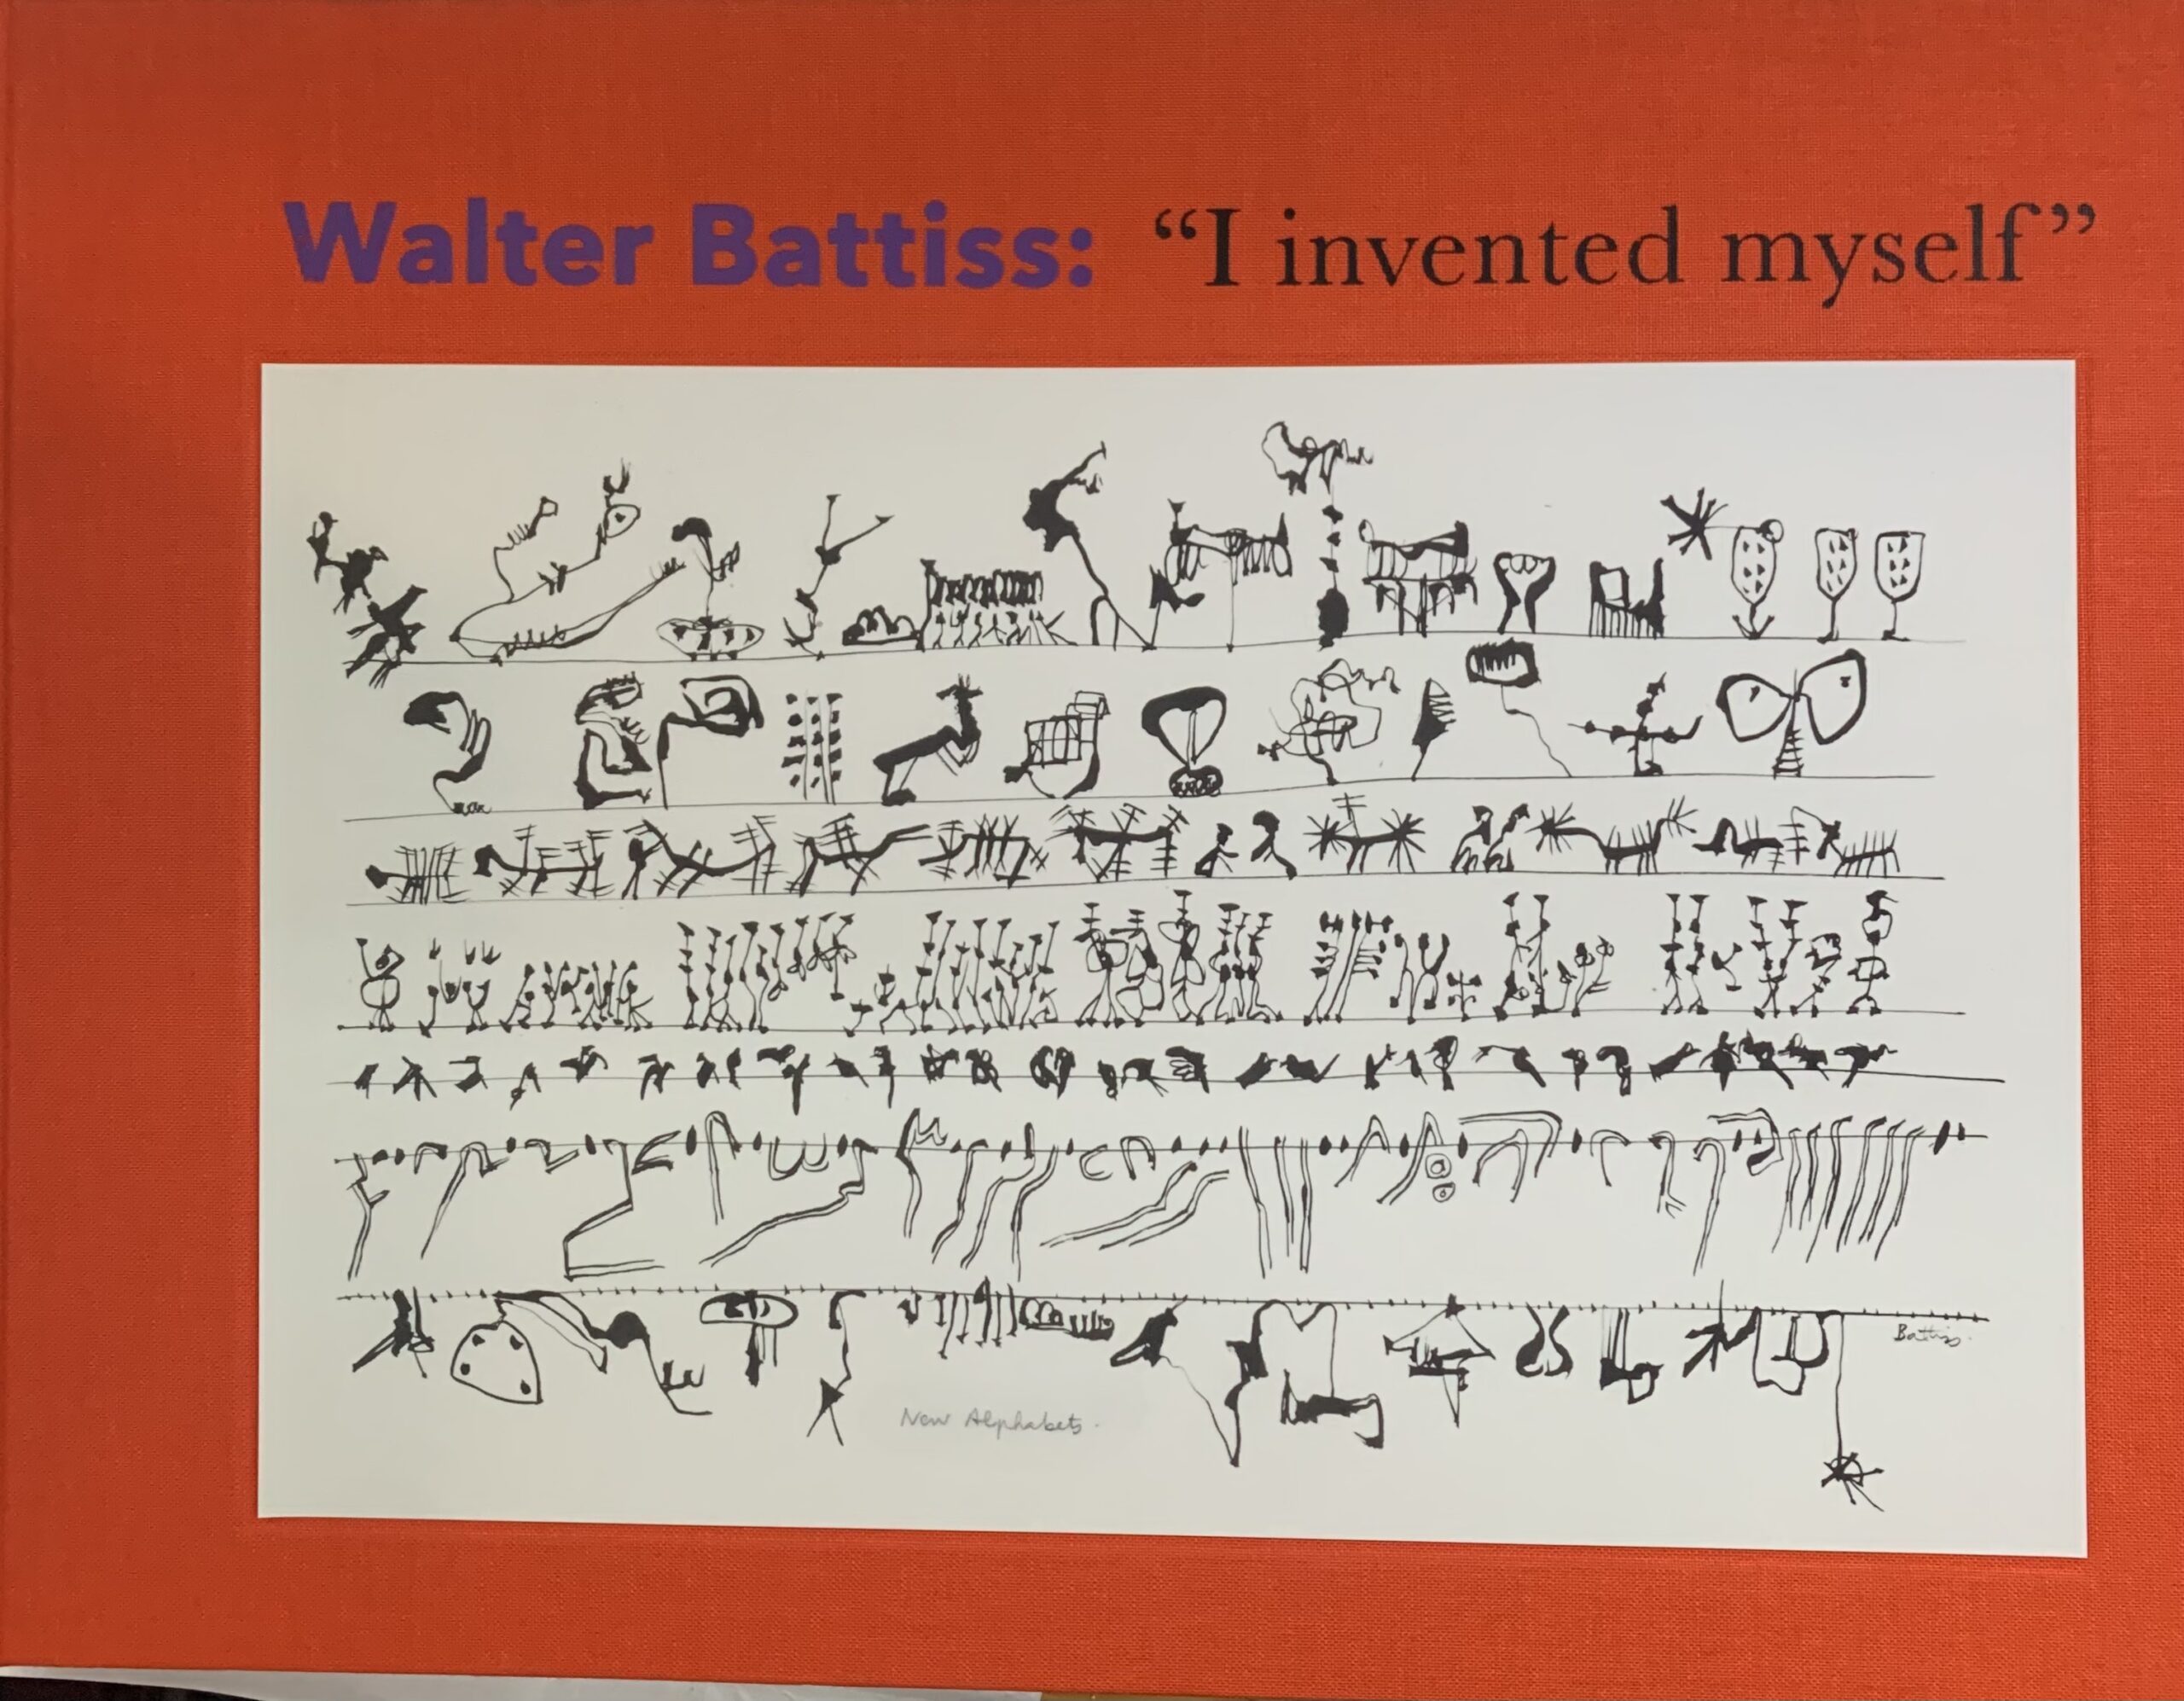 Walter Battiss: “I invented myself”
Battiss.
New Alphabets.